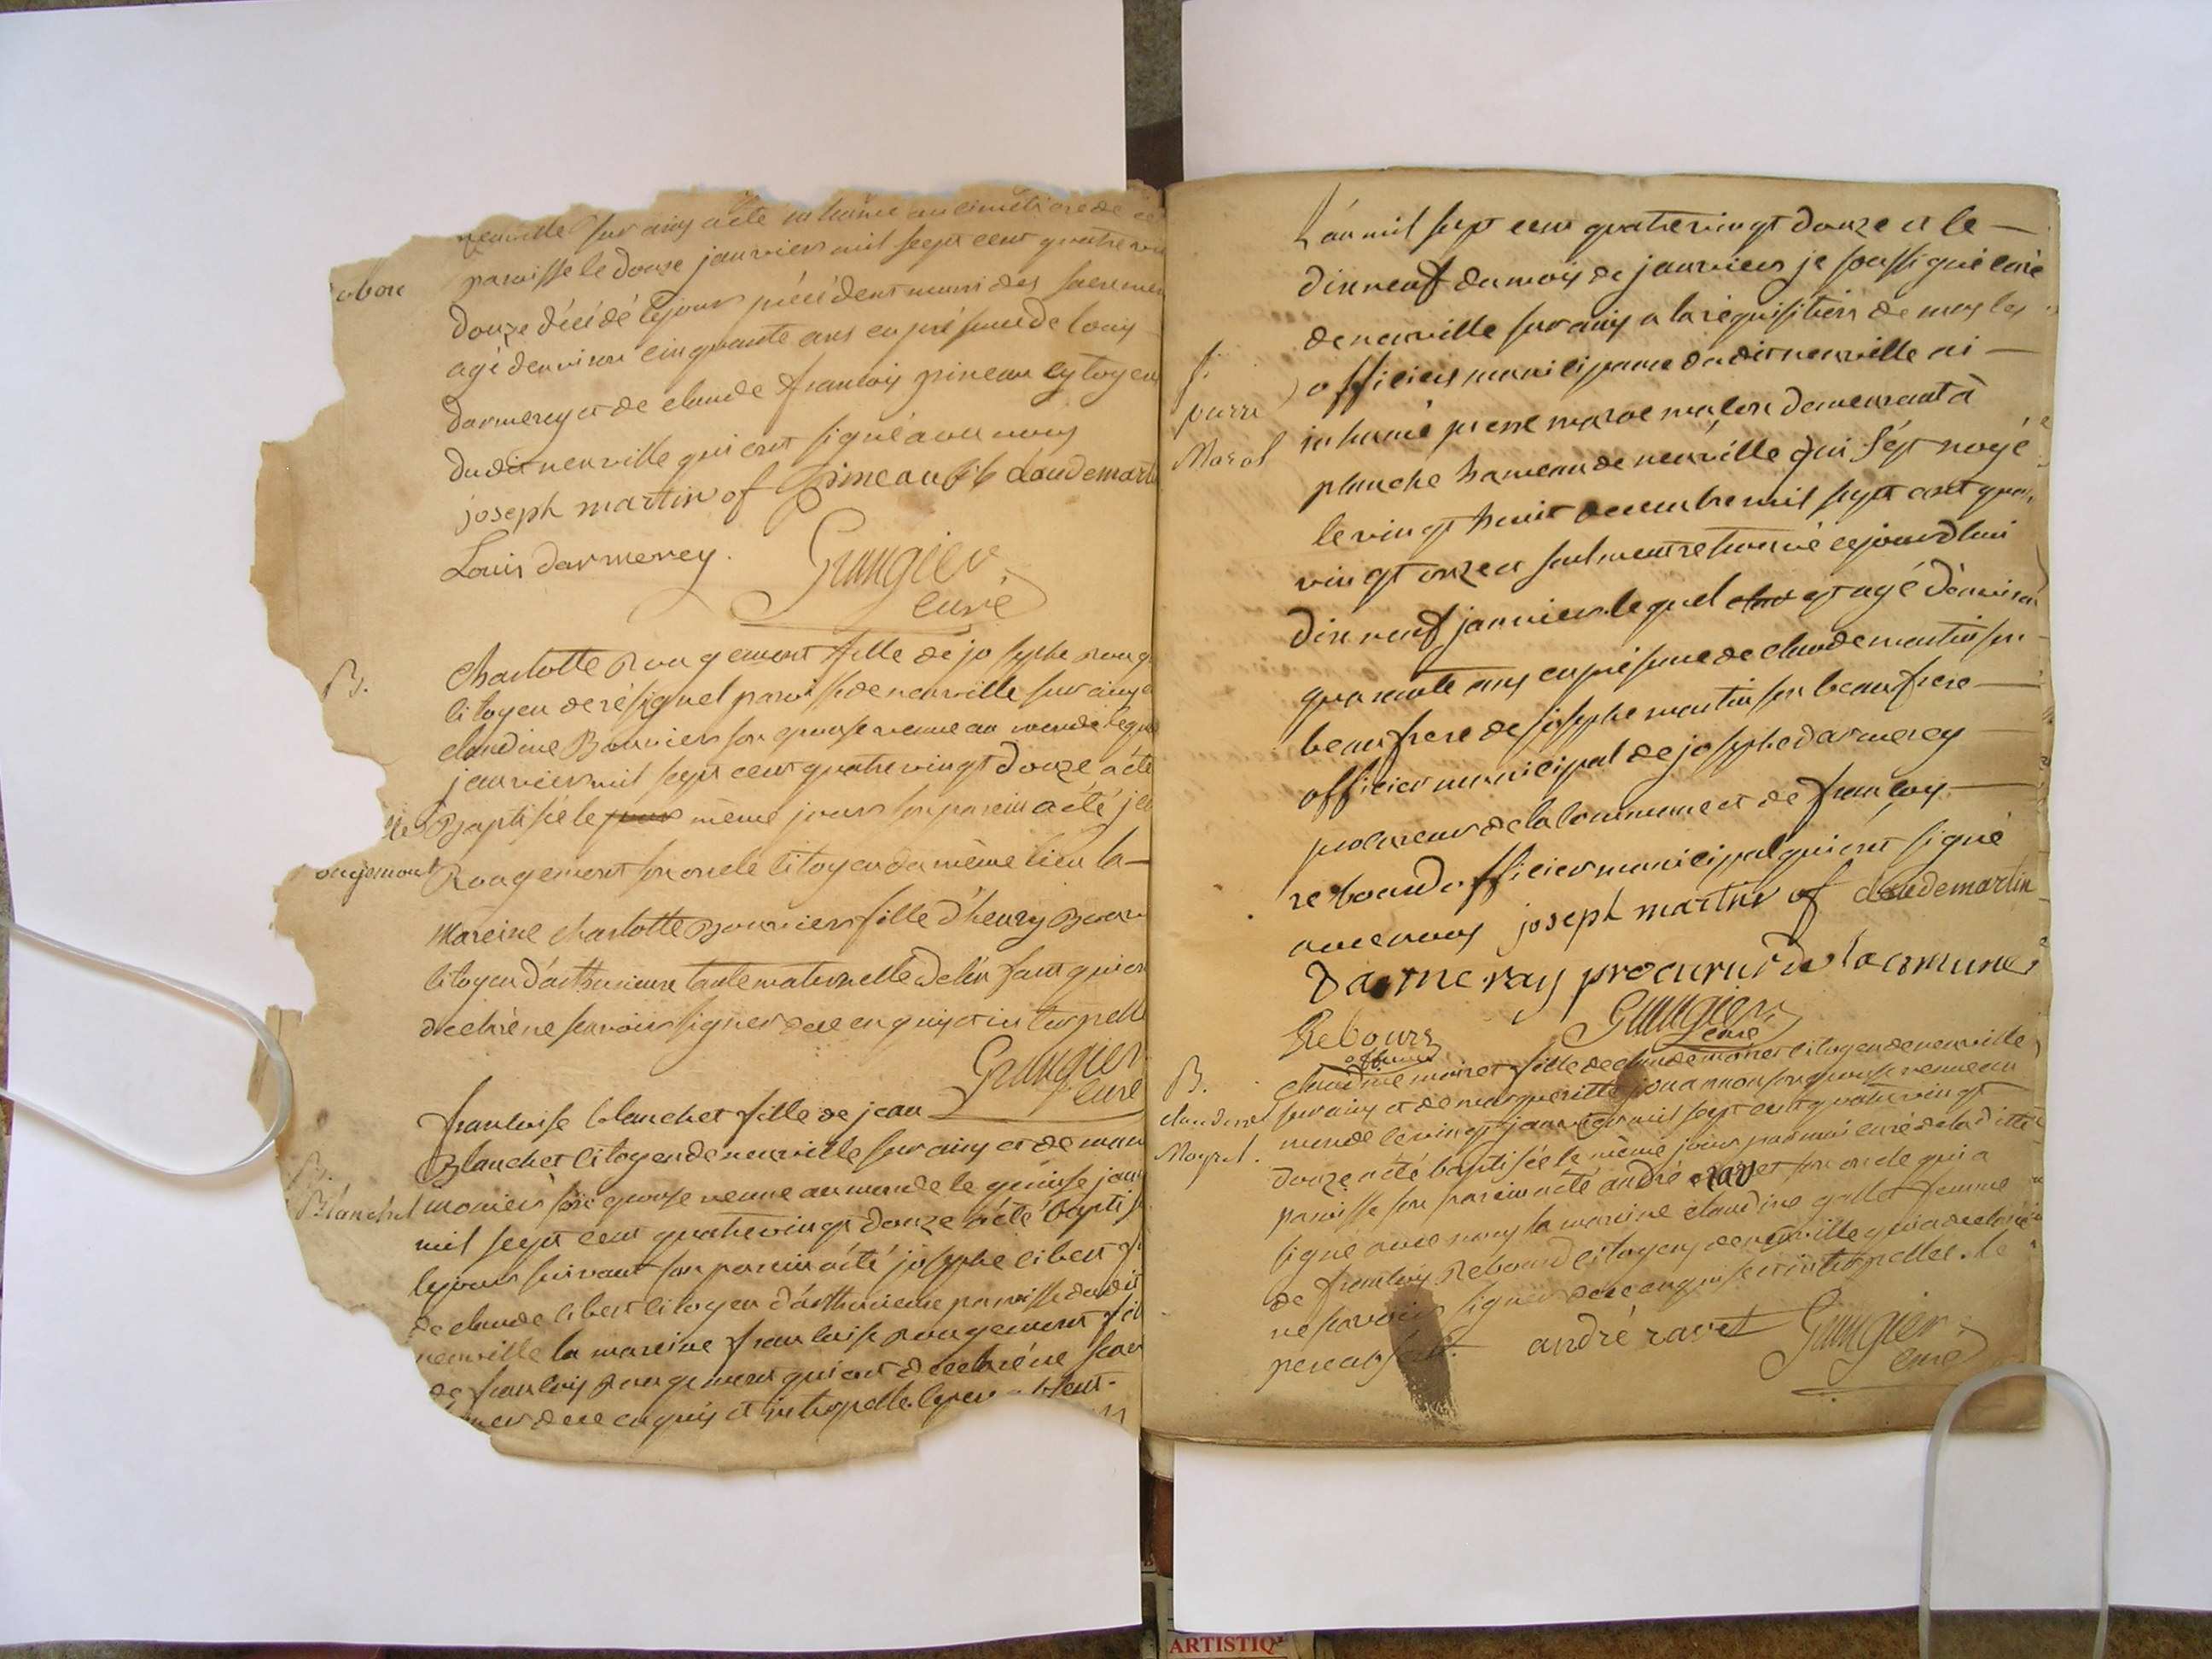 neuville sur ainy a été inhumé au cimetiere de ce
paroisse le douze janvier mil sept cent quatre vin
douze décédé le jour précédent muni des sacremen
agé denviron cinquante ans en présence de louis
darmerey et de claude françois pineau cytoyen
dudit neuville qui ont signé avec nous
joseph martin of pineau claude martin
Louis darmerey. Grangier
curé
B.
Charlotte Rougemont fille de josephe roug
citoyen de résignel paroisse de neuville sur ainy e
claudine Bouvier son epouse venue au monde le
janvier mil sept cent quatre vingt douze a été
Baptisée le jour même jour son parein a été
ougemont
Rougemont son oncle citoyen du même lieu la
Mareine charlotte Bouvier fille d'henry Bouv
citoyen d'authurieure tante maternelle de l'enfant qui on
declaré ne savoir signer de ce enquis et interpellé
Grangier
curé
B.
Blanchet
francoise blanchet fille de jean
Blanchet citoyen de neuville sur ainy et de
monier son epouse venue au monde le quinse janv
mil sept cent quatre vingt douze a été baptisé
le jour suivant son parein a été josephe libert
de claude libert citoyen d'authurieure paroisse dudit
neuville la mareine francoise rougemont fil
de francois rougemont qui ont declaré ne savoi
de ce enquis et interpellé. le pere absent.
L'an mil sept cent quatre vingt douze et le
dix neuf du mois de janvier je soussigné curé
de neuville sur ainy a la réquisition de mrs les
officiers municipaux dudit neuville ai
pierre
Marol
inhumé pierre marol maçon demeurant à
planche hameau de neuville qui s'est noyé
le vingt huit decembre mil sept cent quat
vingt onze et seulment retrouvé cejourdhui
dix neuf janvier lequel est agé d'environ
quarante ans en présence de claude martin son
beaufrere de josephe martin son beaufrere
officier municipal de josephe darmerey
procureur de la commune et de francois
rebourd officier municipal qui ont signé
avec nous joseph martin of claude martin
darmeray procurur de la comune
Rebours Grangier
officier curé
B.
claudine
Moyret.
claudine moiret fille de claude moiret citoyen de neuville
sur ainy et de margueritte jouannon son epouse venue au
monde le vingt janvier mil sept cent quatre vingt
douze a été baptisée le même jour par moi curé de laditte
paroisse son parein a été andré ravet son oncle qui a
signé avec nous la mareine claudine gallet femme
de francois Rebourd citoyens de neuville qui a declaré
ne savoir signer de ce enquise et interpellée. le
pere absent. andré ravet Grangier
curé
ARTISTIQ